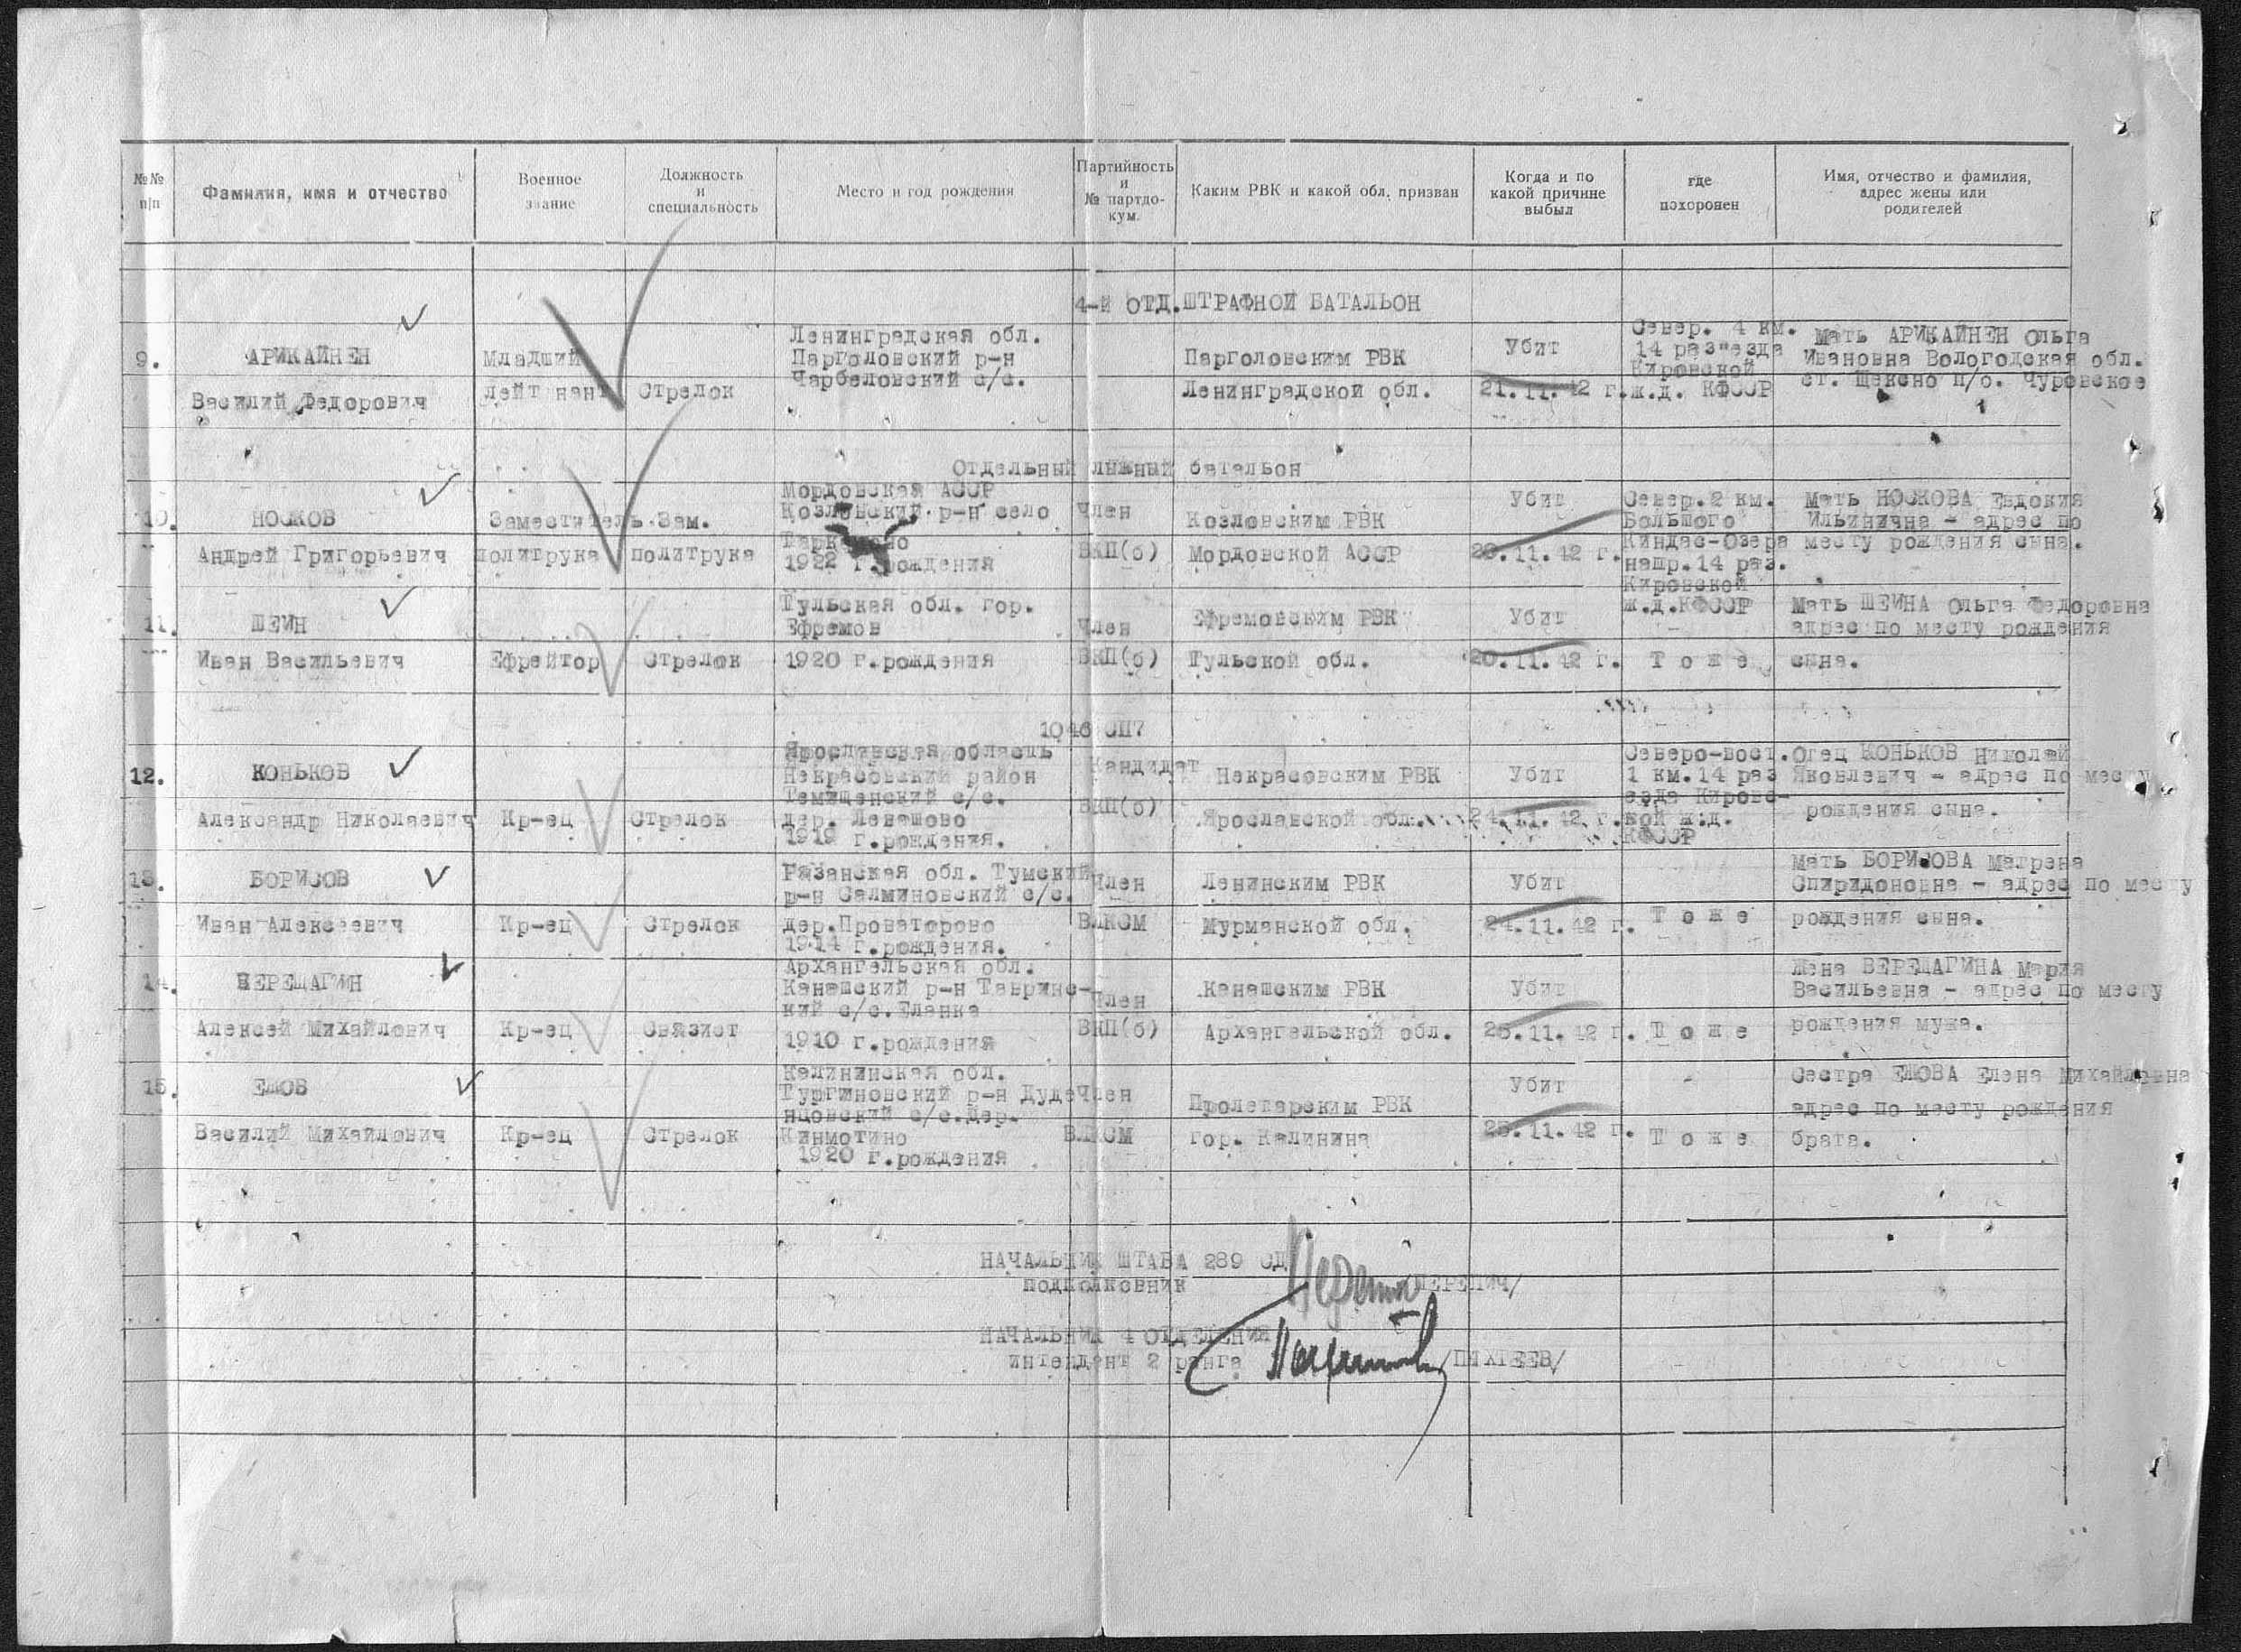 №№ п|п
Фамилия, имя и отчество
Военное звание
Должность и специальность
Место и год рождения
Партийность и № партдо-кум.
Каким РВК и какой обл. призван
Когда и по какой причине выбыл
где похоронен
Имя, отчество и фамилия, адрес жены или родителей
4-й ОТД. ШТРАФНОЙ БАТАЛЬОН
9.
АРИКАЙНЕН
Василий Федорович
Младший
лейт нант
Стрелок
Ленинградская обл.
Парголовский р-н
Чарбеловский с/с.
Парголовским РВК
Ленинградской обл.
Убит
21.11.42 г.
Север. 4 км.
14 раз"езда
Кировской
ж.д. КФССР
Мать АРИКАЙНЕН Ольга
Ивановна Вологодская обл.
ст. Щексно п/о. Чуровское
Отдельный лыжный батальон
10.
НОСКОВ
Андрей Григорьевич
Заместитель
политрука
Зам.
политрука
Мордовская АССР
Козловский р-н село
1922 г.рождения
Член
ВКП(б)
Козловским РВК
Мордовской АССР
Убит
20.11.42 г.
Север.2 км.
Большого
Киндас-Озера
напр.14 раз.
Кировской
ж.д.КФССР
Мать НОСКОВА Евдокия
Ильинична - адрес по
месту рождения сына.
11.
ШЕИН
Иван Васильевич
Ефрейтор
Стрелок
Тульская обл. гор.
Ефремов
1920 г.рождения
Член
ВКП(б)
Ефремовским РВК
Тульской обл.
Убит
20.11.42 г.
Т о ж е
Мать ШЕИНА Ольга Федоровна
адрес по месту рождения
сына.
1046 СП?
12.
КОНЬКОВ
Александр Николаевич
Кр-ец
Стрелок
Ярославская область
Некрасовский район
Темищенский с/с.
дер. Левашово
1919 г.рождения.
Кандидат
ВКП(б)
Некрасовским РВК
Ярославской обл.
Убит
24.11.42 г.
Северо-вост.
1 км.14 раз
езда Кировс-
кой ж.д.
КФССР
Отец КОНЬКОВ Николай
Яковлевич - адрес по месту
рождения сына.
13.
БОРИСОВ
Иван Алексеевич
Кр-ец
Стрелок
Рязанская обл. Тумский
р-н Салминовский с/с.
дер.Проваторово
1914 г.рождения.
Член
ВЛКСМ
Ленинским РВК
Мурманской обл.
Убит
24.11.42 г.
Т о ж е
Мать БОРИСОВА Матрена
Спиридоновна - адрес по месту
рождения сына.
14.
ВЕРЕЩАГИН
Алексей Михайлович
Кр-ец
Связист
Архангельская обл.
Канашский р-н Тавринс-
кий с/с.Еланка
1910 г.рождения
Член
ВКП(б)
Канашским РВК
Архангельской обл.
Убит
25.11.42 г.
Т о ж е
Жена ВЕРЕЩАГИНА Мария
Васильевна - адрес по месту
рождения мужа.
15.
ЕЖОВ
Василий Михайлович
Кр-ец
Стрелок
Калининская обл.
Тургиновский р-н Дуде
нцовский с/с.дер.
Кинмотино
1920 г.рождения
Член
ВЛКСМ
Пролетарским РВК
гор. Калинина
Убит
25.11.42 г.
Т о ж е
Сестра ЕЖОВА Елена Михайловна
адрес по месту рождения
брата.
НАЧАЛЬНИК ШТАБА 289 СД
подполковник /ПЕРЕПИЧ/
НАЧАЛЬНИК 4 ОТДЕЛЕНИЯ
интендант 2 ранга /ПАХТЕЕВ/